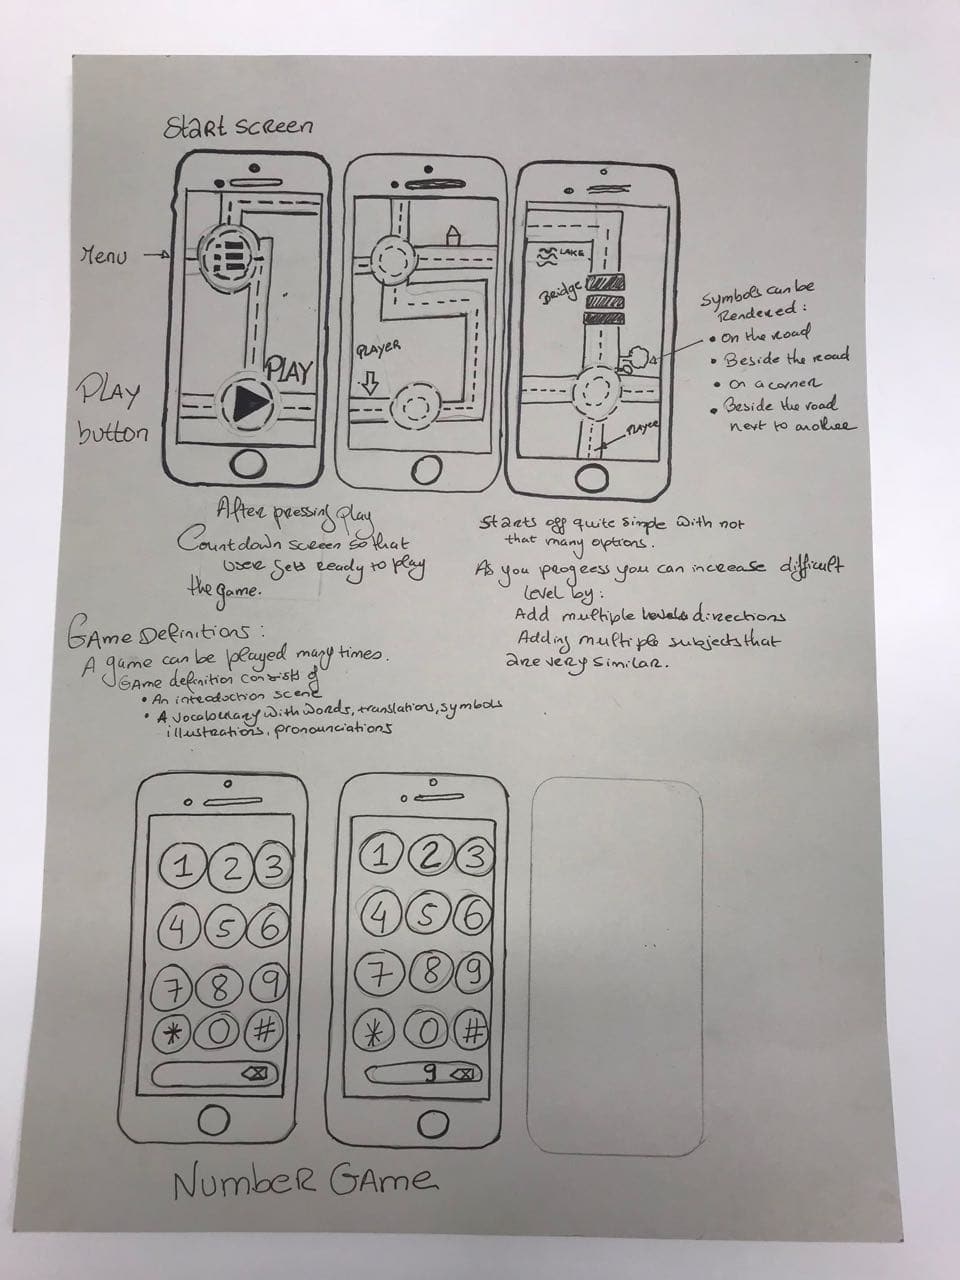 Start screen
Menu
PLAY
button
PLAY
PLAYER
LAKE
Bridge
PLAYER
Symbols can be
Rendered:
• On the road
• Beside the road
• On a corner
• Beside the road
next to another
After pressing play
Countdown screen so that
user gets ready to play
the game.
Starts off quite simple with not
that many options.
As you progress you can increase difficult
level by:
Add multiple levels directions
Adding multiple subjects that
are very similar.
Game Definitions:
A game can be played many times.
Game definition consists of
• An introduction scene
• A vocabulary with words, translations, symbols
illustrations, pronounciations
1 2 3
4 5 6
7 8 9
* 0 #
1 2 3
4 5 6
7 8 9
* 0 #
9
Number Game